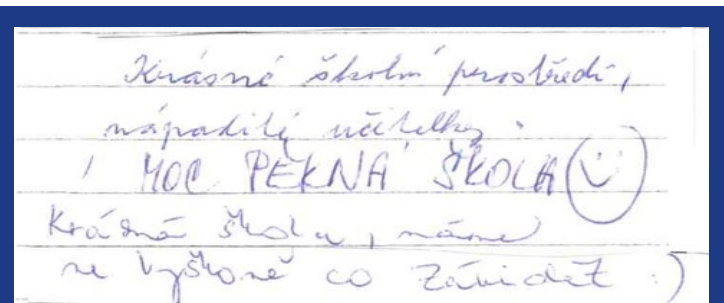 Krásné školní prostředí,
nápadité učitelky.
! MOC PĚKNÁ ŠKOLA
Krásná škola, máme
ve Vyškově co závidět :)